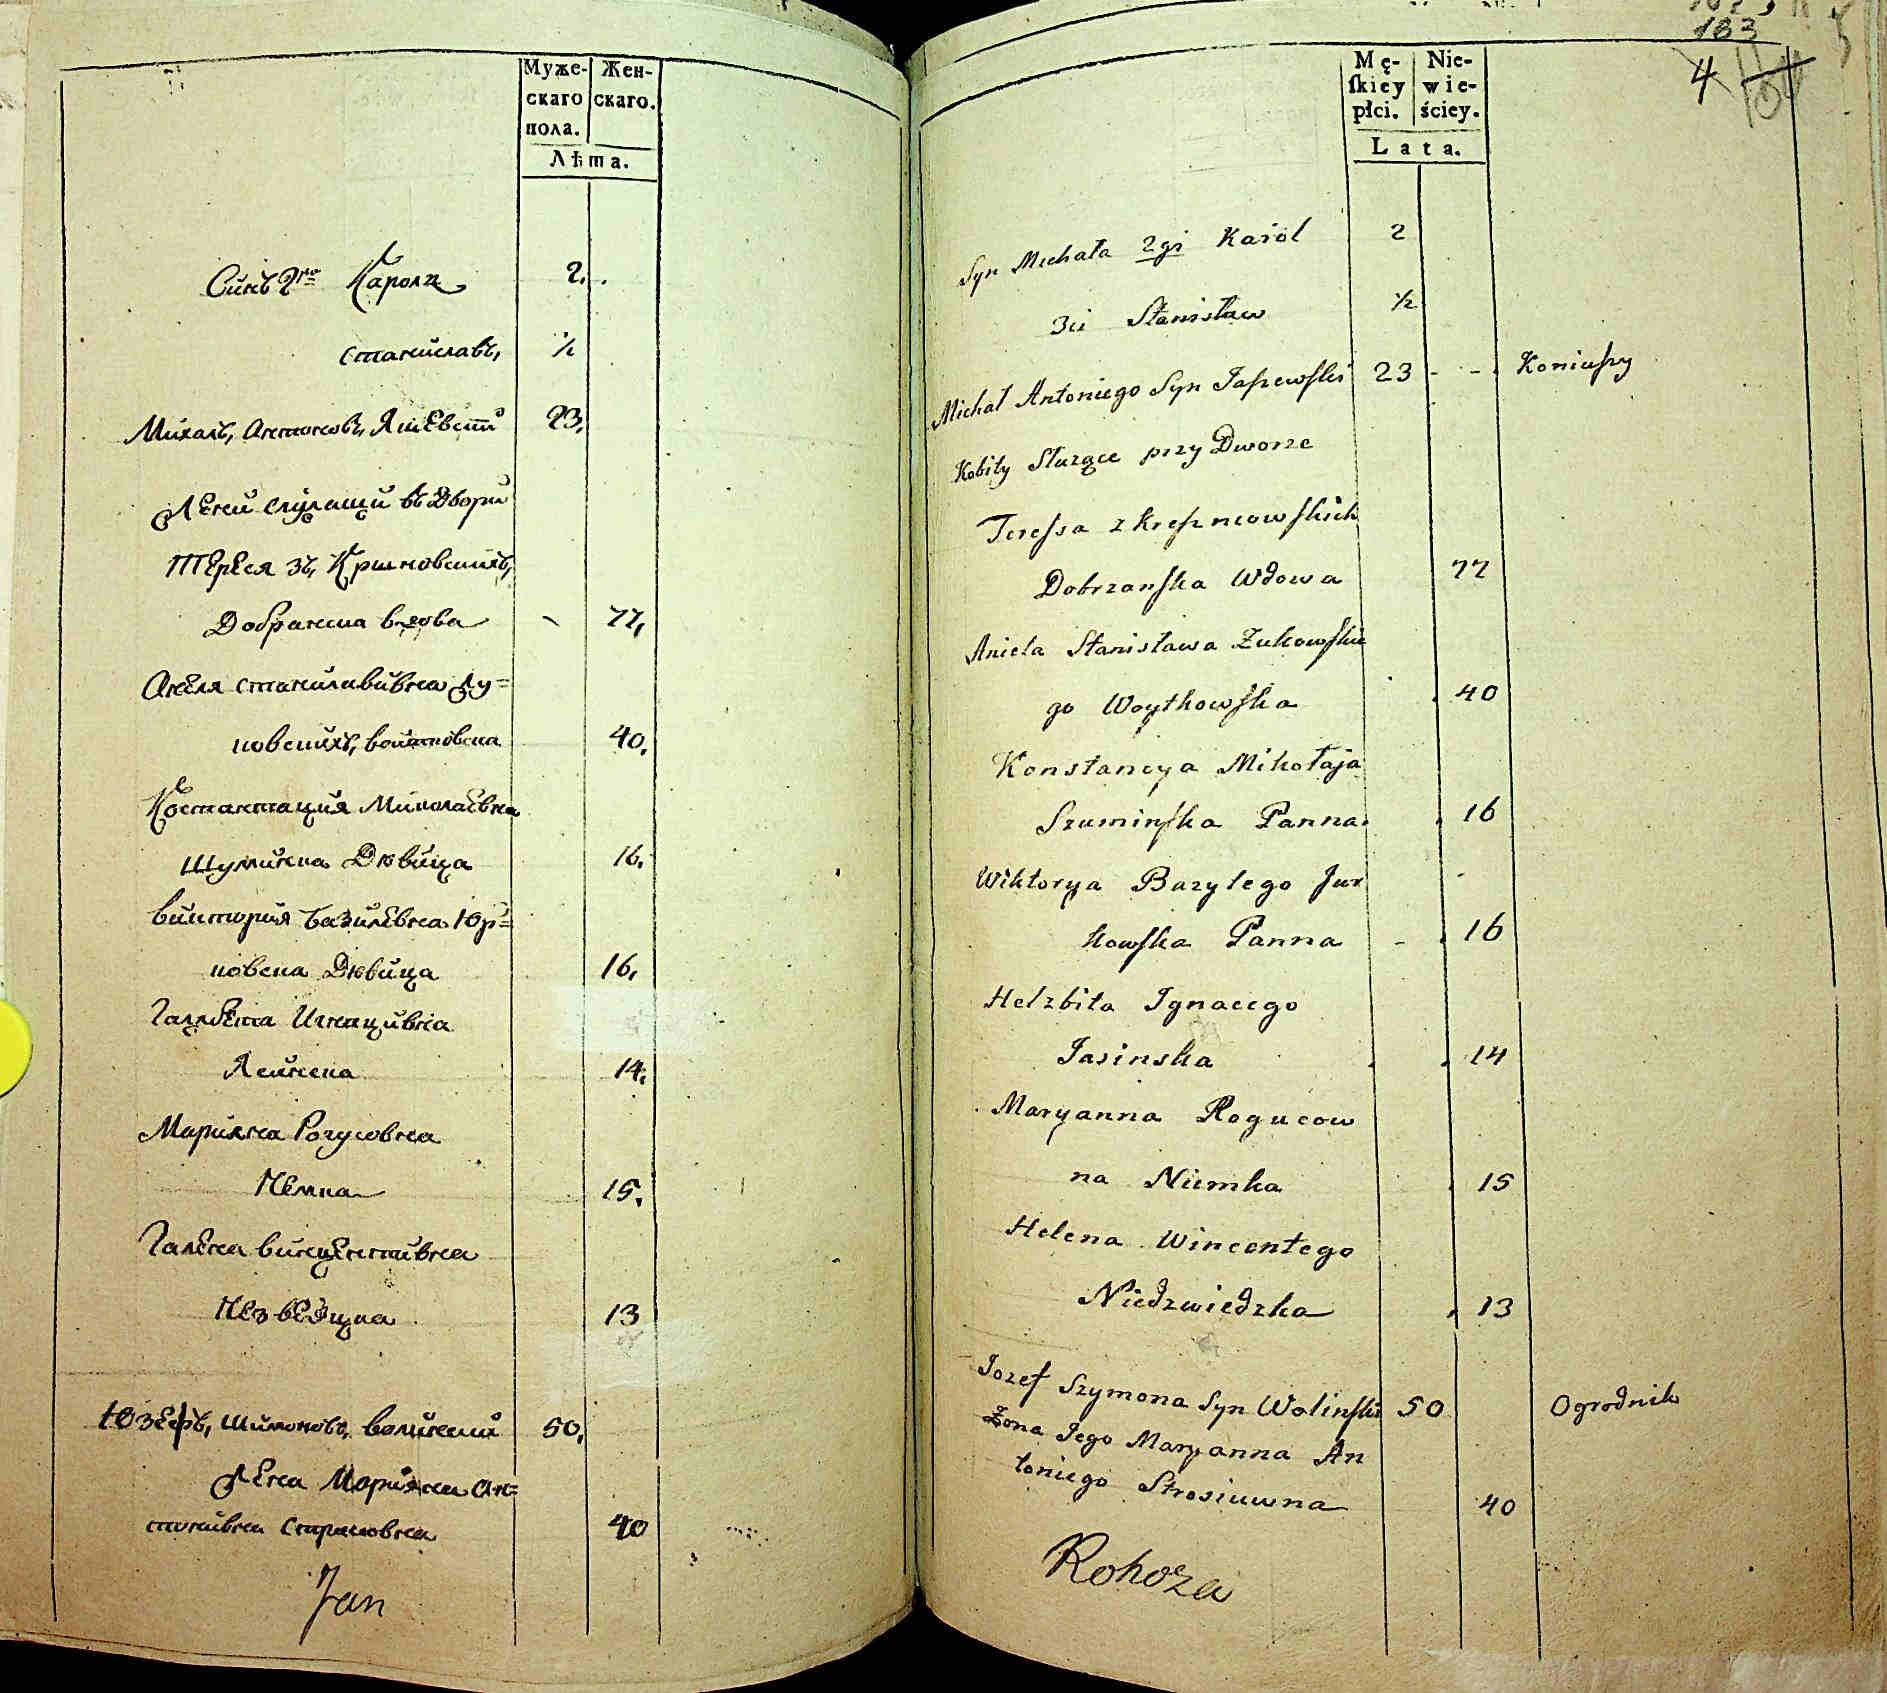 Муже- Жен-
скаго скаго.
пола.
Лѣта.
Синъ 2го Кароль 2.
Станиславъ, ½
Михалъ, Антоновъ, Яшевскій 23,
Жени служащи въ Двори
Тереся зъ, Кршновскихъ,
Добранска вдова 77,
Анеля Станиславивна Жу=
ковскихъ, войтковска 40,
Констанция Миколаевна
Шуминска Дѣвица 16.
Виктория Базилевна Юр=
ковска Дѣвица 16,
Галжбета Игнацивна
Ясинска 14,
Мариянна Рогусовна
Немка 15,
Галена винцентивна
Незведцка 13
Юзефъ, Шимоновъ, волинский 50,
Жена Марияна Ан=
тонивна Страсювна 40
Jan
183
4
Mę- Nie-
skiey wie-
płci. ściey.
Lata.
Syn Michała 2gi Karól 2
3ci Stanisław ½
Michał Antoniego Syn Jaszewski 23 - - Koniuszy
Kobity Służące przy Dworze
Teressa z Kreszneowskich
Dobrzanska Wdowa 77
Aniela Stanisława Żukowskie
go Woytkowska 40
Konstancya Mikołaja
Szuminska Panna 16
Wiktorya Bazylego Jur
kowska Panna - 16
Helzbita Ignacego
Jasinska 14
Maryanna Rogucow
na Niemka 15
Helena Wincentego
Niedzwiedzka 13
Jozef Szymona Syn Wolinski 50 Ogrodnik
Żona Jego Maryanna An
toniego Strasiuwna 40
Rohoza